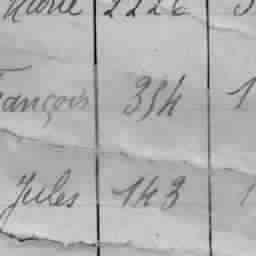 Marie 2226
François 354 1
Jules 143 1